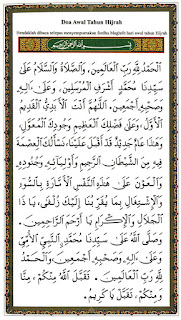 Doa Awal Tahun Hijrah
Hendaklah dibaca selepas menyempurnakan fardhu Maghrib hari awal tahun Hijrah
بِسْمِ اللَّهِ الرَّحْمَنِ الرَّحِيمِ
اَلْحَمْدُ لِلَّهِ رَبِّ الْعَالَمِينَ. وَالصَّلَاةُ وَالسَّلَامُ عَلَى
سَيِّدِنَا مُحَمَّدٍ أَشْرَفِ الْمُرْسَلِينَ، وَعَلَى آلِهِ
وَصَحْبِهِ أَجْمَعِينَ. اَللَّهُمَّ أَنْتَ الْأَبَدِيُّ الْقَدِيمُ
الْأَوَّلُ، وَعَلَى فَضْلِكَ الْعَظِيمِ وَجُودِكَ الْمُعَوَّلُ،
وَهَذَا عَامٌ جَدِيدٌ قَدْ أَقْبَلَ عَلَيْنَا، نَسْأَلُكَ الْعِصْمَةَ
فِيهِ مِنَ الشَّيْطَانِ الرَّجِيمِ وَأَوْلِيَائِهِ وَجُنُودِهِ
وَالْعَوْنَ عَلَى هَذِهِ النَّفْسِ الْأَمَّارَةِ بِالسُّوءِ
وَالْإِشْتِغَالِ بِمَا يُقَرِّبُنَا إِلَيْكَ زُلْفَى، يَا ذَا
الْجَلَالِ وَالْإِكْرَامِ يَا أَرْحَمَ الرَّاحِمِينَ.
وَصَلَّى اللَّهُ عَلَى سَيِّدِنَا مُحَمَّدٍ النَّبِيِّ الْأُمِّيِّ
وَعَلَى آلِهِ وَصَحْبِهِ أَجْمَعِينَ، وَالْحَمْدُ
لِلَّهِ رَبِّ الْعَالَمِينَ. تَقَبَّلَ اللَّهُ مِنْكُمْ، مِنَّا
وَمِنْكُمْ، تَقَبَّلْ يَا كَرِيمُ.